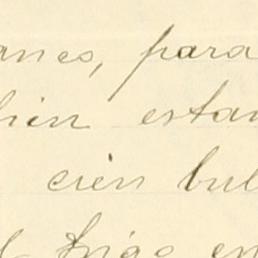 anes, para
hin estan
cien bul
trigo en